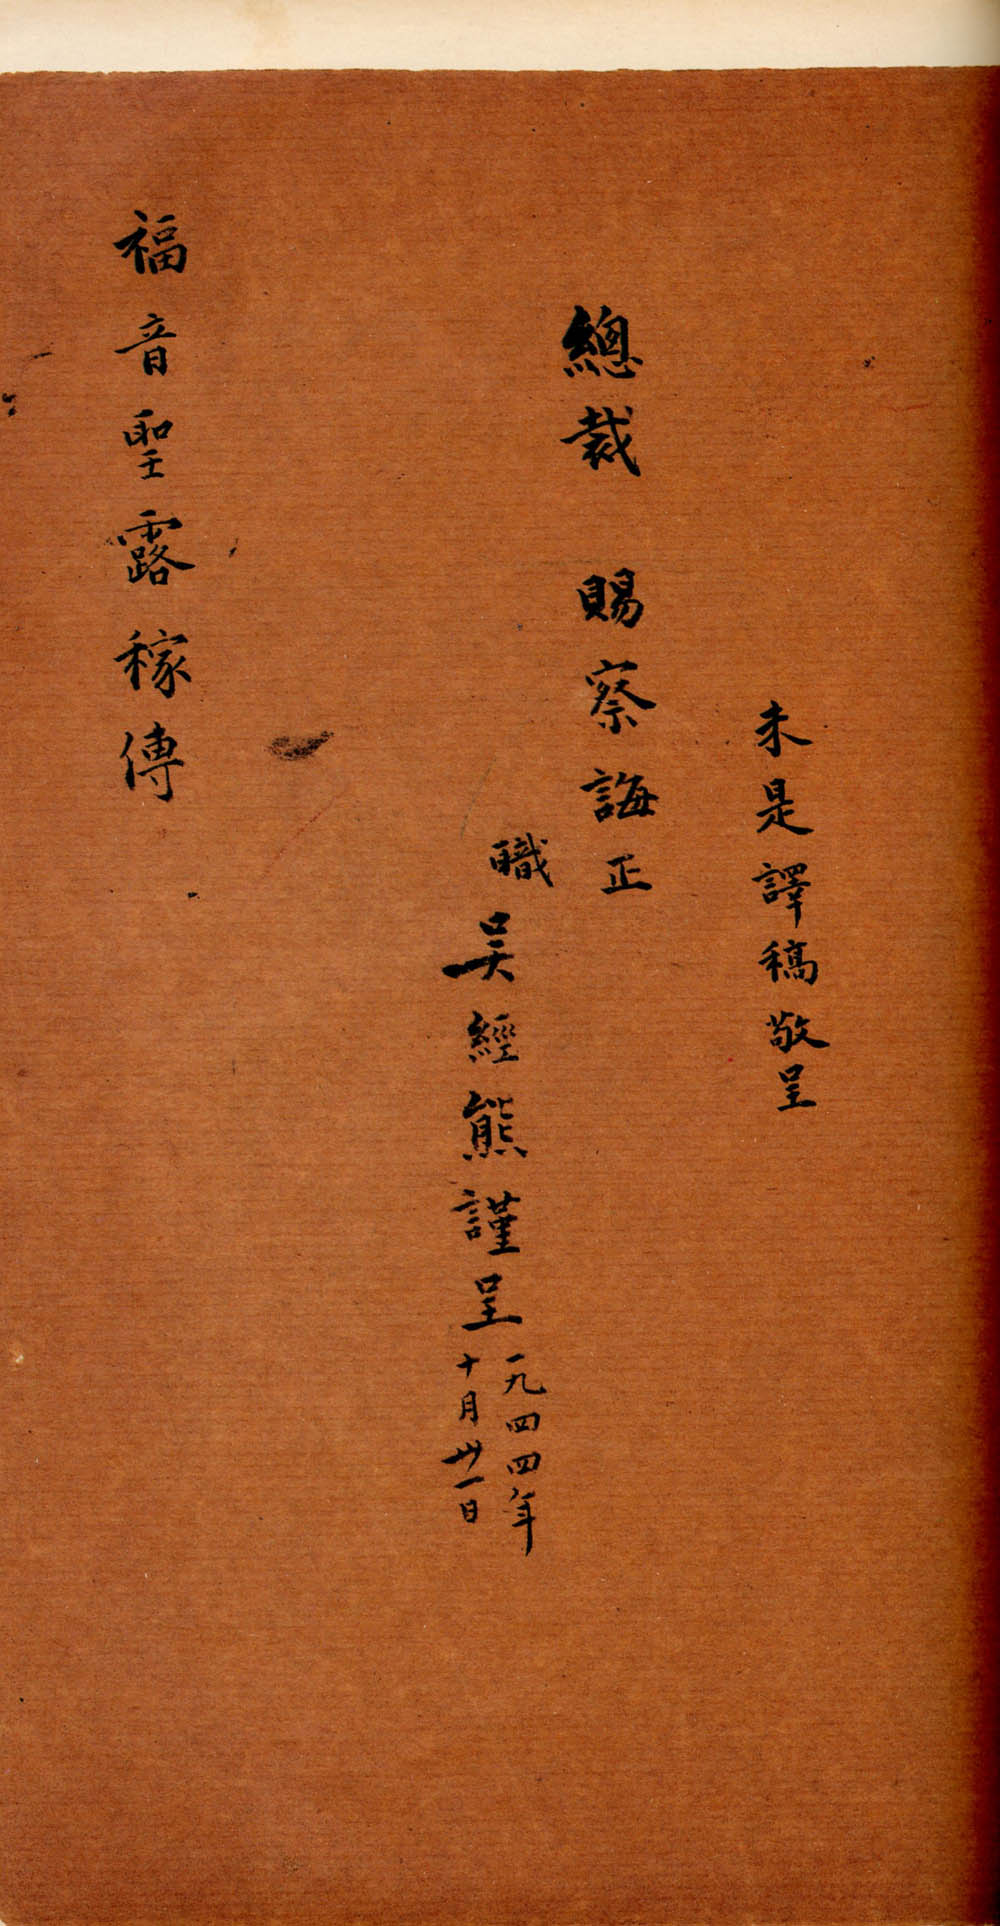 未是譯稿敬呈
總裁 賜察誨正
職吳經熊謹呈
一九四四年
十月卅一日
福音聖露稼傳